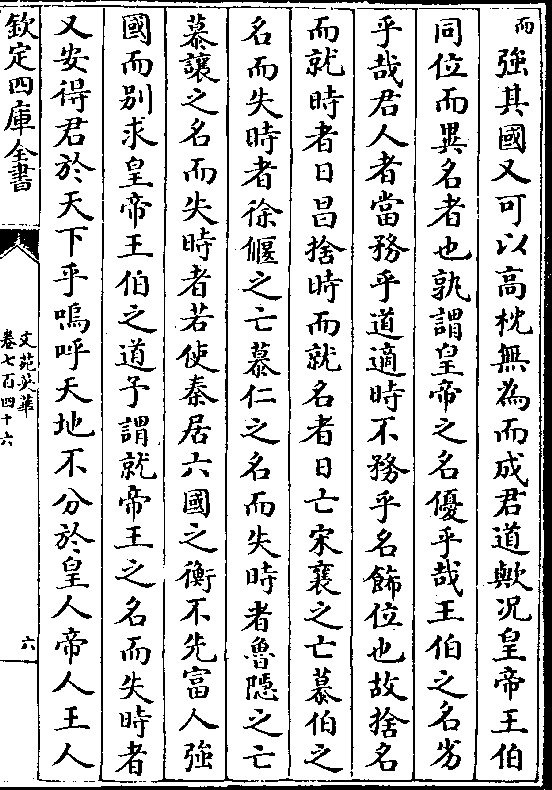 而強其國又可以高枕無為而成君道歟况皇帝王伯
同位而異名者也孰謂皇帝之名優乎哉王伯之名劣
乎哉君人者當務乎道適時不務乎名飾位也故捨名
而就時者日昌捨時而就名者日亡宋襄之亡慕伯之
名而失時者徐偃之亡慕仁之名而失時者魯隠之亡
慕讓之名而失時者若使秦居六國之衡不先富人強
國而别求皇帝王伯之道予謂就帝王之名而失時者
又安得君於天下乎嗚呼天地不分於皇人帝人王人
欽定四庫全書
文苑英華
卷七百四十六
六